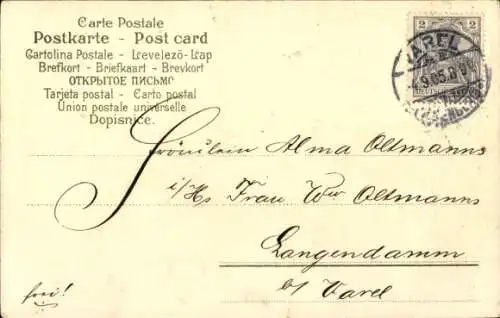 Carte Postale
Postkarte - Post card
Cartolina Postale - Levelezö-Lap
Brefkort - Briefkaart - Brevkort
ОТКРЫТОЕ ПИСЬМО
Tarjeta postal - Carto postal
Union postale universelle
Dopisnice.
2 2
VAREL
Fräulein Alma Oltmanns
i/Hs Frau Ww Oltmanns
Langendamm
b/ Varel
frei!